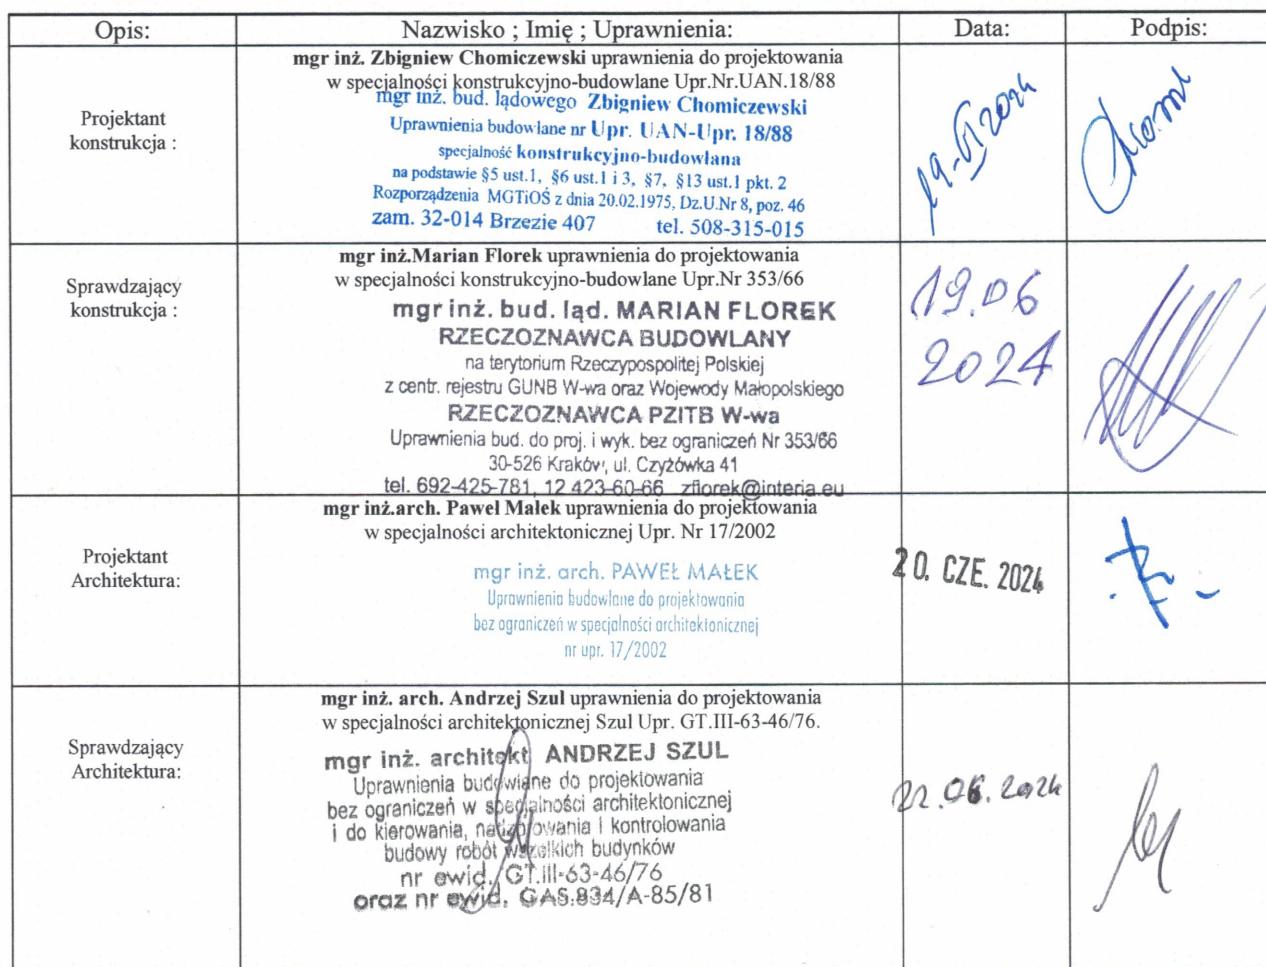 Opis: Nazwisko ; Imię ; Uprawnienia: Data: Podpis:
mgr inż. Zbigniew Chomiczewski uprawnienia do projektowania
w specjalności konstrukcyjno-budowlane Upr.Nr.UAN.18/88
Projektant
konstrukcja :
mgr inż. bud. lądowego Zbigniew Chomiczewski
Uprawnienia budowlane nr Upr. UAN-Upr. 18/88
specjalność konstrukcyjno-budowlana
na podstawie §5 ust.1, §6 ust.1 i 3, §7, §13 ust.1 pkt. 2
Rozporządzenia MGTiOŚ z dnia 20.02.1975, Dz.U.Nr 8, poz. 46
zam. 32-014 Brzezie 407 tel. 508-315-015
19-VI 2024
mgr inż.Marian Florek uprawnienia do projektowania
w specjalności konstrukcyjno-budowlane Upr.Nr 353/66
Sprawdzający
konstrukcja :
mgr inż. bud. ląd. MARIAN FLOREK
RZECZOZNAWCA BUDOWLANY
na terytorium Rzeczypospolitej Polskiej
z centr. rejestru GUNB W-wa oraz Wojewody Małopolskiego
RZECZOZNAWCA PZITB W-wa
Uprawnienia bud. do proj. i wyk. bez ograniczeń Nr 353/66
30-526 Kraków, ul. Czyżówka 41
tel. 692-425-781, 12 423-60-66 zflorek@interia.eu
19.06
2024
mgr inż.arch. Paweł Małek uprawnienia do projektowania
w specjalności architektonicznej Upr. Nr 17/2002
Projektant
Architektura:
mgr inż. arch. PAWEŁ MAŁEK
Uprawnienia budowlane do projektowania
bez ograniczeń w specjalności architektonicznej
nr upr. 17/2002
20. CZE. 2024
mgr inż. arch. Andrzej Szul uprawnienia do projektowania
w specjalności architektonicznej Szul Upr. GT.III-63-46/76.
Sprawdzający
Architektura:
mgr inż. architekt ANDRZEJ SZUL
Uprawnienia budowlane do projektowania
bez ograniczeń w specjalności architektonicznej
i do kierowania, nadzorowania i kontrolowania
budowy robót wszelkich budynków
nr ewid. GT.III-63-46/76
oraz nr ewid. GAS.834/A-85/81
22.06.2024